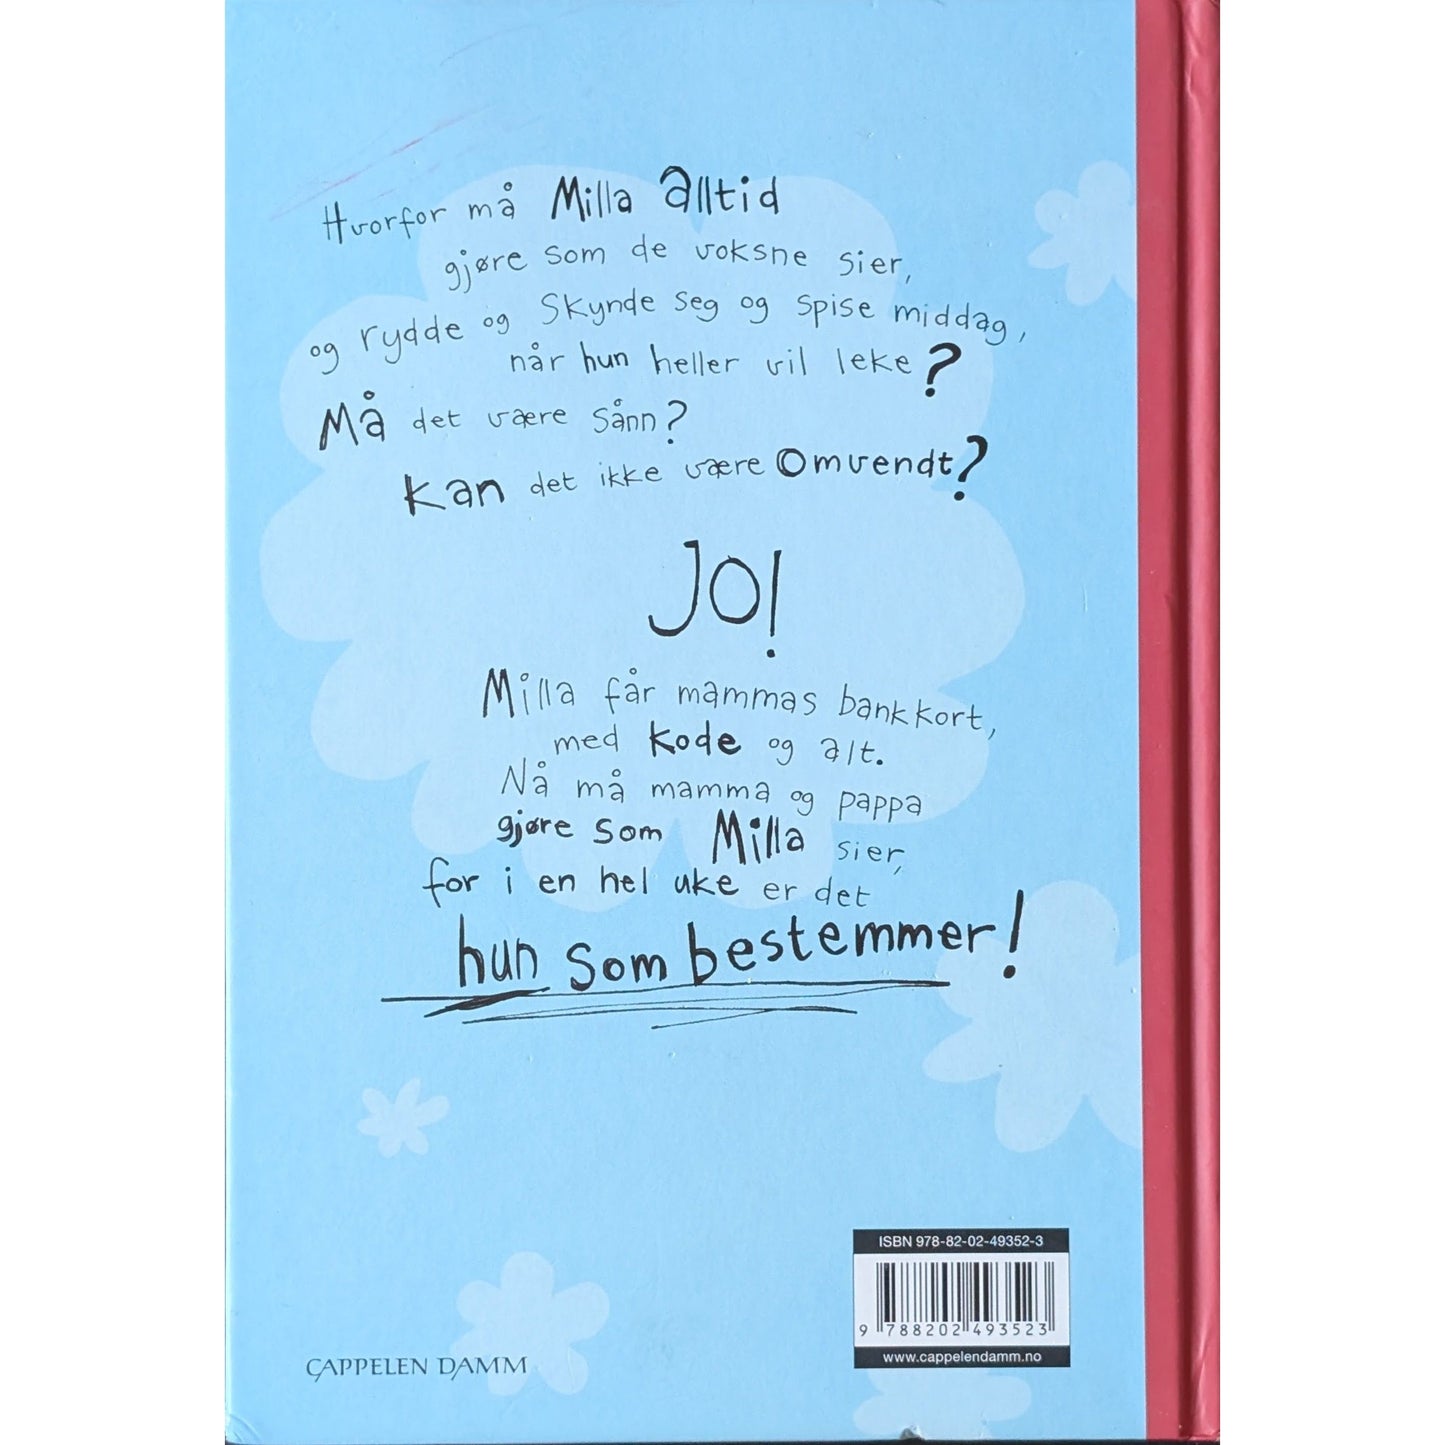 Hvorfor må Milla alltid
gjøre som de voksne sier,
og rydde og skynde seg og spise middag,
når hun heller vil leke?
Må det være sånn?
Kan det ikke være omvendt?
JO!
Milla får mammas bankkort,
med kode og alt.
Nå må mamma og pappa
gjøre som Milla sier,
for i en hel uke er det
hun som bestemmer!
ISBN 978-82-02-49352-3
9 788202 493523
www.cappelendamm.no
CAPPELEN DAMM